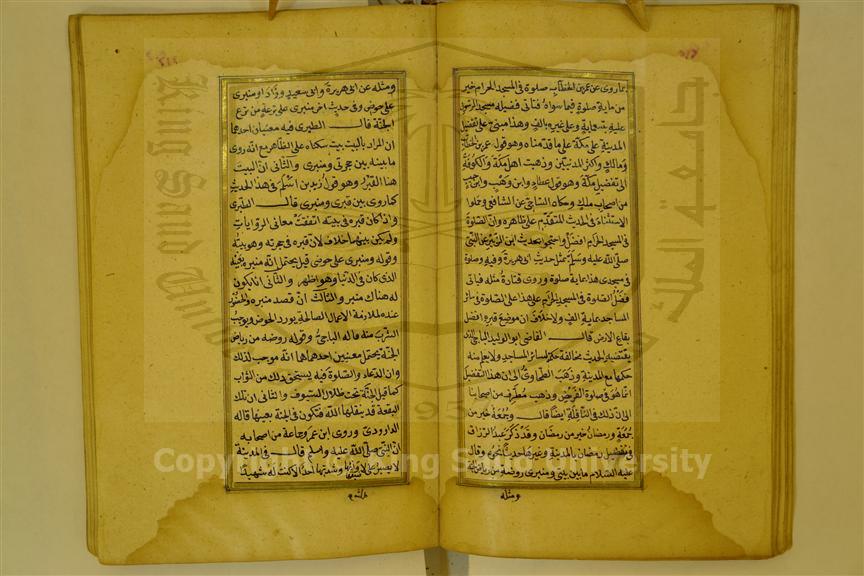 بما روى عن عمر بن الخطاب صلوة في المسجد الحرام خير
من ماية صلوة فيما سواه فتاتى فضيلة مسجد الرسول
عليه بتسعماية وعلى غيره بالف وهذا مبنى على تفضيل
المدينة على مكة على ما قدمناه وهو قول عمر بن الخطاب
ومالك واكثر المدنيين وذهبت اهل مكة والكوفة
الى تفضيل مكة وهو قول عطاء وابن وهب وابن حبيب
من اصحاب مالك وحكاه الساجى عن الشافعى وحملوا
الاستثناء في الحديث المتقدم على ظاهره وان الصلوة
في المسجد الحرام افضل واحتجوا بحديث ابن الزبير عن النبى
صلى الله عليه وسلم بمثل حديث ابى هريرة وفيه وصلوة
في مسجدى هذا بماية صلوة وروى قتادة مثله فياتى
فضل الصلوة في المسجد الحرام على هذا على الصلوة في سائر
المساجد بماية الف ولا خلاف ان موضع قبره افضل
بقاع الارض قال القاضى ابو الوليد الباجى الذى
يقتضيه الحديث مخالفة حكم لسائر المساجد ولا يعلم منه
حكمها مع المدينة وذهب الطحاوى الى ان هذا التفضيل
انما هو في صلوة الفرض وذهب مطرف من اصحابنا
الى ان ذلك في النافلة ايضا قال وجمعة خير من
جمعة ورمضان خير من رمضان وقد ذكر عبد الرزاق
في تفضيل رمضان بالمدينة وغيرها حديثا نحوه وقال
عليه السلام ما بين بيتى ومنبرى روضة من رياض الجنة
ومثله
ومثله عن ابى هريرة وابى سعيد وزاد ومنبرى
على حوضى وفي حديث اخر منبرى على ترعة من ترع
الجنة قال الطبرى فيه معنيان احدهما
ان المراد بالبيت بيت سكناه على الظاهر مع انه روى
ما بينه بين حجرتى ومنبرى والثانى ان البيت
هنا القبر وهو قول زيد بن اسلم في هذا الحديث
كما روى بين قبرى ومنبرى قال الطبرى
واذا كان قبره في بيته اتفقت معانى الروايات
ولم يكن بينها خلاف لان قبره في حجرته وهو بيته
وقوله ومنبرى على حوضى قيل يحتمل انه منبره بعينه
الذى كان في الدنيا وهو اظهر والثانى ان يكون
له هناك منبر والثالث ان قصد منبره والحضور
عنده لملازمة الاعمال الصالحة يورد الحوض ويوجب
الشرب منه قاله الباجى وقوله روضة من رياض
الجنة يحتمل معنيين احدهما انه موجب لذلك
وان الدعاء والصلوة فيه يستحق ذلك من الثواب
كما قيل الجنة تحت ظلال السيوف والثانى ان تلك
البقعة قد ينقلها الله فتكون في الجنة بعينها قاله
الداودى وروى ابن عمر وجماعة من اصحابه
ان النبى صلى الله عليه وسلم قال في المدينة
لا يصبر على لاوائها وشدتها احد الا كنت له شهيدا
جامعة الملك سعود
King Saud University
1957
Copyright © King Saud University